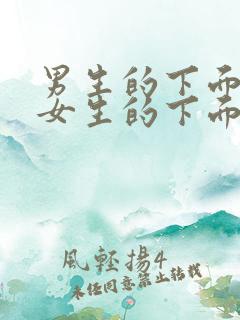 男生的下面
女生的下面
風輕揚4
未经同意禁止转载